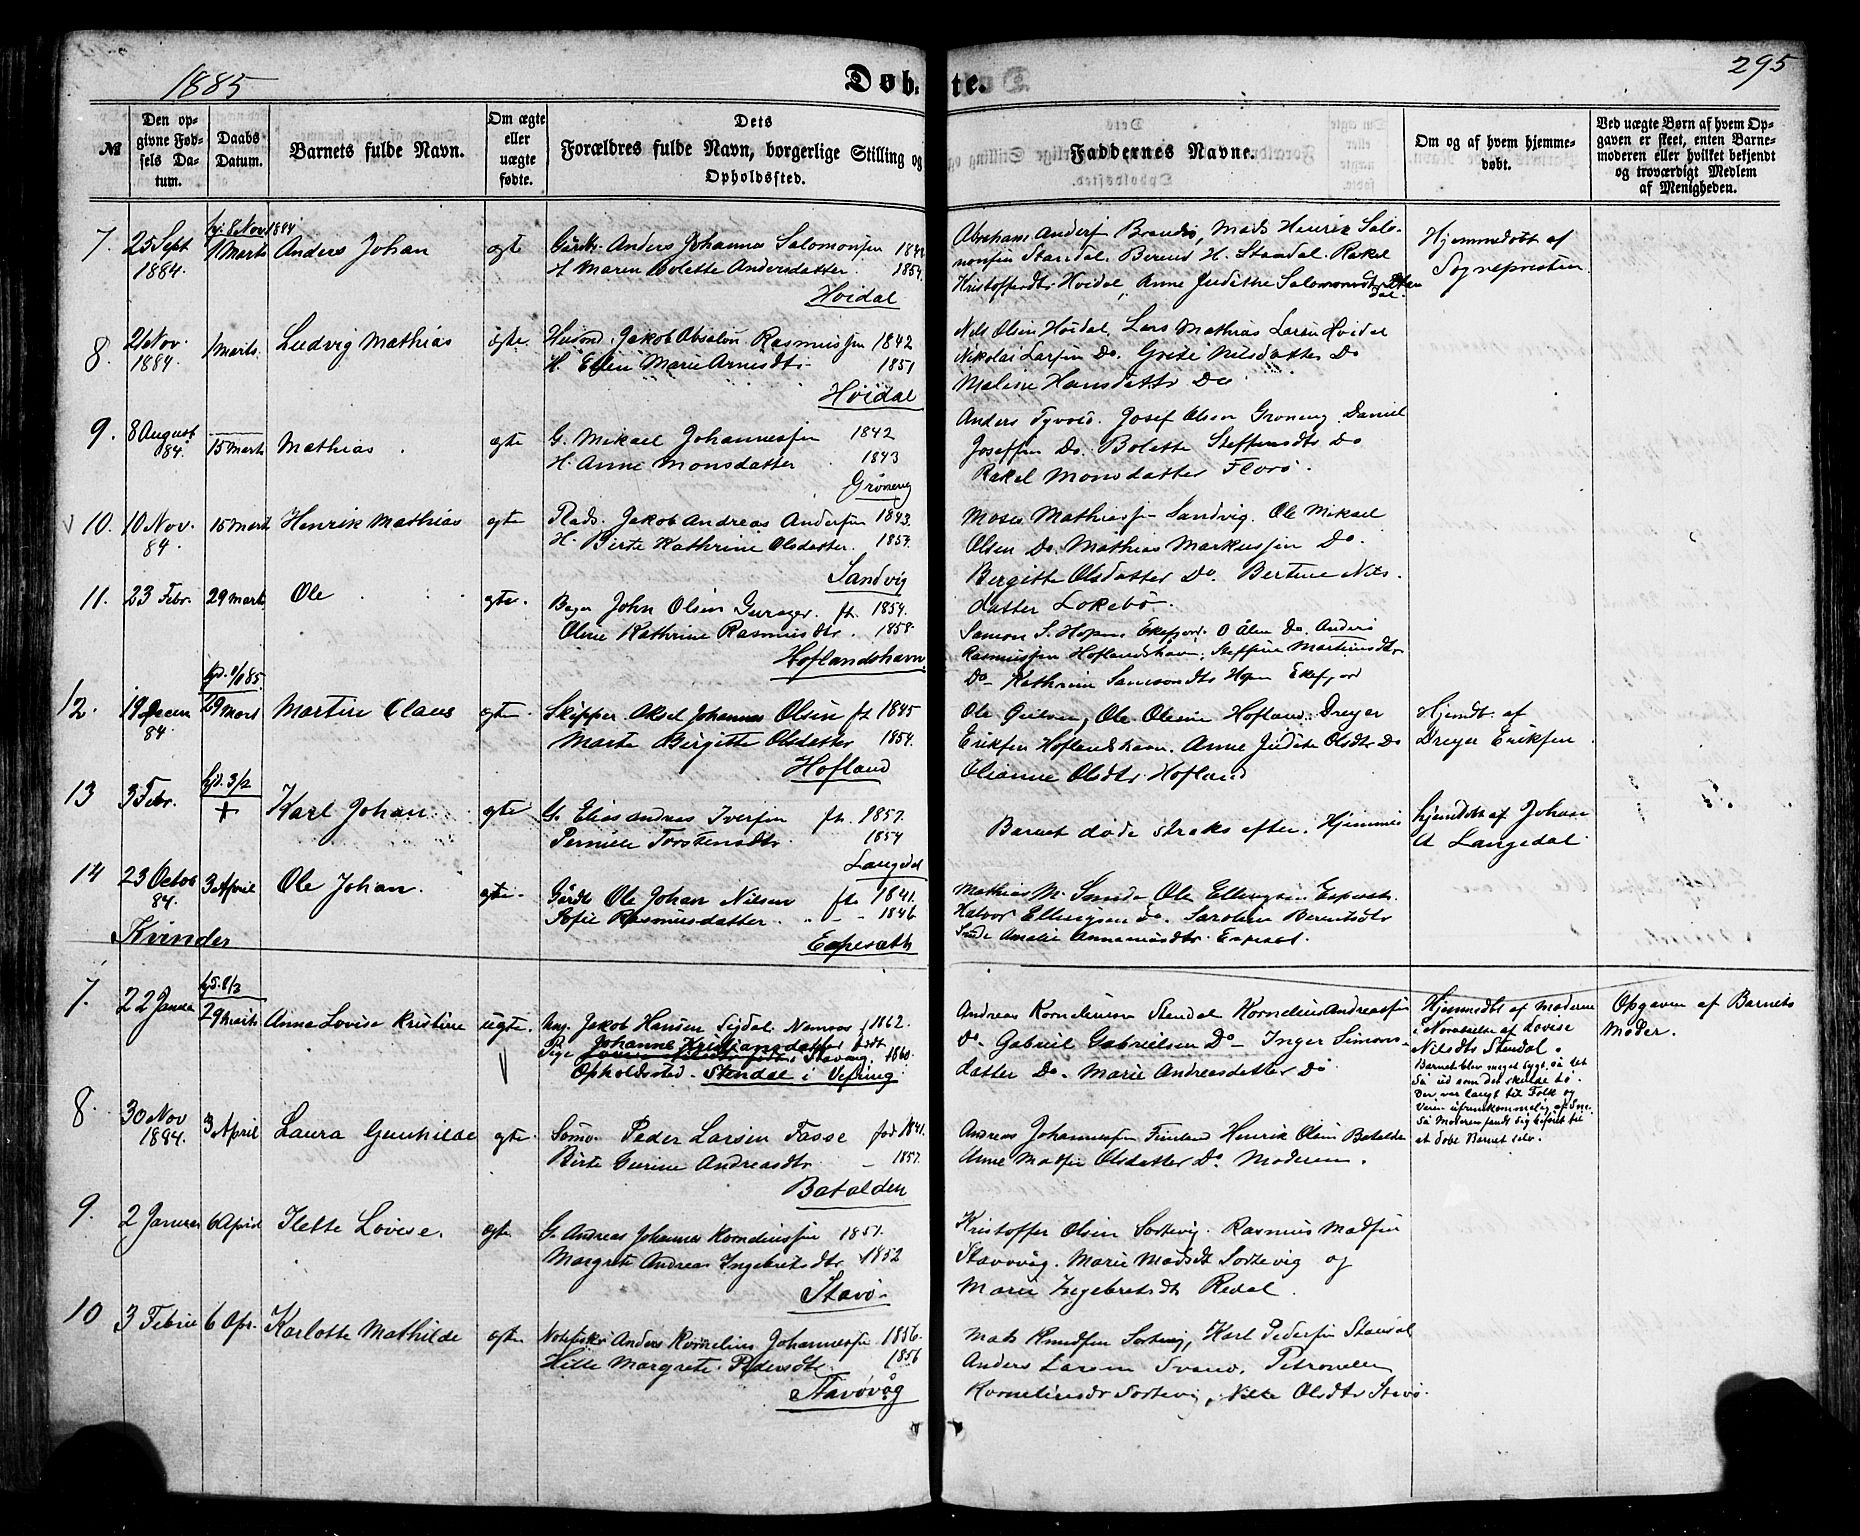 1885
Døb. te.
295
№
Den opgivne Fødsels Datum.
Daabs Datum.
Barnets fulde Navn.
Om ægte eller uægte fødte.
Dets Forældres fulde Navn, borgerlige Stilling og Opholdssted.
Faddernes Navne.
Om og af hvem hjemmedøbt.
Ved uægte Børn af hvem Opgaven er skeet, enten Barnemoderen eller hvilket bekjendt og troværdigt Medlem af Menigheden.
7. 25 Sept 1884. hj. 8 Nov 1884 1 Marts Anders Johan ægte Anders Johannes Salomonsen
H. Maren Bolette Andersdatter. 1854.
Hvidal
Abraham Andersf Brandsø, Mads Henrik Salo-
monsen Standal. Berent H. Standal. Rakel
Kristoffersdtr Hvidal, Anne Judithe Salomonsdtr
Hjemmedøbt af
Sognepresten
8. 21 Nov. 1884. 1 Marts. Ludvig Mathias ægte. Husmd. Jakob Absalon Rasmussen 1842
H. Elen Marie Arnesdtr 1851
Høidal
Nils Olsen Høidal, Lars Mathias Larsen Hvidal
Nikolai Larsen Do. Grete Nilsdatter Do
Malene Hansdattr Do
9. 8 August 84. 15 Marts Mathias ægte G. Mikael Johannessen 1842
H. Anne Monsdatter 1843
Grøneng
Anders Tyvold. Josef Olsen Grøneng Daniel
Joseffsen Do. Bolette Steffensdtr Do
Rakel Monsdatter Florø.
10. 10 Nov. 84. 15 Mart Henrik Mathias ægte Plads. Jakob Andreas Andersen 1843.
H. Birte Kathrine Olsdatter. 1854.
Sandvig
Moses Mathiassen Sandvig. Ole Mikael
Olsen Do. Mathias Markussen Do.
Birgitte Olsdatter Do. Bertine Nils-
datter Løkebø.
11. 23 Febr. 29 Marts Ole ægte. John Olsen ft. 1854.
Oline Kathrine Rasmusdtr. 1858.
Hoflandshavn
Samson S. Hopen Ekefjord. O Ålen Do. Anders
Rasmussen Hoflandshavn, Steffine Martinusdtr
Do Kathrine Samsondtr Hopen Ekefjord
12. 19 Decem 84. 29 Mart Martin Claus ægte Skipper Aksel Johannes Olsen ft 1845
Marte Birgitte Olsdatter 1854.
Hofland
Ole Olsen Hofland. Dreyer
Eriksen Hoflandshavn. Anne Judite Olsdtr Do
Olianne Olsdtr Hofland
Hjemdt. af
Dreyer Eriksen
13 3 Febr. hjd. 3/2 + Karl Johan ægte G. Elias Andreas Iversen ft. 1857.
Pernille Torstensdtr. 1854
Langedal
Barnet døde straks efter. Hjemme
hjemdøbt af Johan
A Langedal
14 23 Octob 84. 3 April Ole Johan. ægte. Gårdb Ole Johan Nilsen ft. 1841.
Sofie Rasmusdatter. 1846
Espesæth
Mathias M. Ole Ellingsen Espeseth
Halvor Ellingsen do. Saroline Berentsdtr
Amalie Espeset.
Kvinder
7. 22 Janua hjd. 8/3 29 Marts Anna Lovise Kristine uægte. Ung. Jakob Hansen Sigdal Namsos f 1862.
Pige Johanne Kristiansdatter født i Stavang. 1860.
Opholdssted. Stendal i Vefring
Andreas Kornelisen Stendal Kornelius Andreassen
Do Gabriel Gabrielsen Do Inger Simons-
datter Do. Marie Andreasdatter Do
Hjemmedt af Moderen
i Nærværelse af Lovise
Nilsdtr Stendal.
Barnet blev meget sygt så det
så ud som det skulde dø.
Der var langt til Folk og
Veien ufremkommelig af Sne.
Så Moderen fandt sig beføiet til
at døbe Barnet selv.
Opgaven af Barnets
Moder.
8. 30 Nov 1884. 3 April Laura Gunhilde ægte. Peder Larsen Fasse fød 1841.
Birte Gurine Andreasdtr. 1857.
Batalden
Andreas Johannessen Henrik Olsen Batalden
Anne Madsen Olsdatter Do. Moderen.
9. 2 Januar 6 April Ilette Lovise. ægte G. Andreas Johannes Korneliussen 1851.
Margrete Andrea Ingebretsdtr 1852
Stavø
Kristoffer Olsen Sortevig. Rasmus Madsen
Stavøvåg. Marie Madsdt Sortevig og
Marie Ingebretsdt Redal.
10 3 Febru 6 Apr. Karlotte Mathilde ægte Notfisker Anders Kornelius Johannessen 1856.
Hilte Margrete Pedersdtr. 1856
Stavøvåg
Mats Knudsen Sortevig, Karl Pedersen Standal
Anders Larsen Svanø, Petronelle
Korneliusdr Sortevig, Olsdtr Stavø.